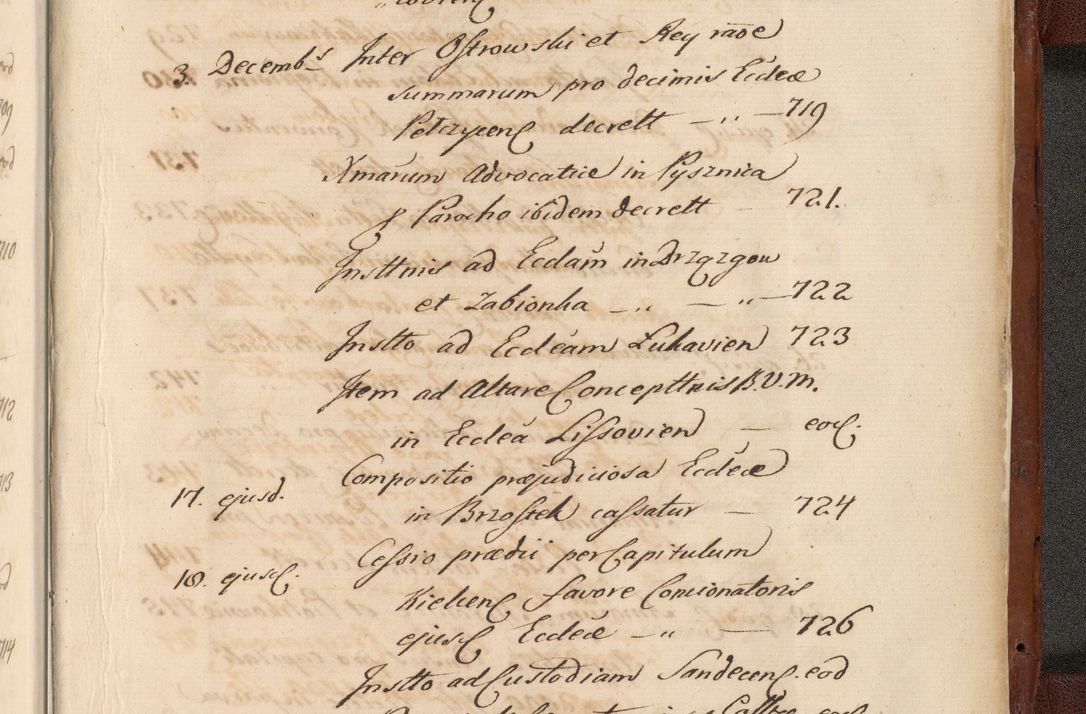 3. Decemb^s Inter Ostrowski et Rey rāōe
summarum pro decimis Ecclæ
Pełczycen decrett — „ — 719
Xmarum Advocatiæ in Pysznica
Parocho ibidem decrett — 721.
Insttnis ad Ecclām in Drzązgow
et Zabionka — „ — „ — 722
Instto ad Eccleam Lukavien 723
Item ad Altare Concepttnis B. V. M.
in Ecclea Lissovien — eod.
Compositio præjudiciosa Eccleæ
17. ejusd. in Brzostek cassatur — 724
Cessio prædii per Capitulum
18. ejusd. Kielcen favore Concionatoris
ejusd Eccleæ — „ — 726
Instto ad Custodiam Sandecen. eod
709
710
712
713
714